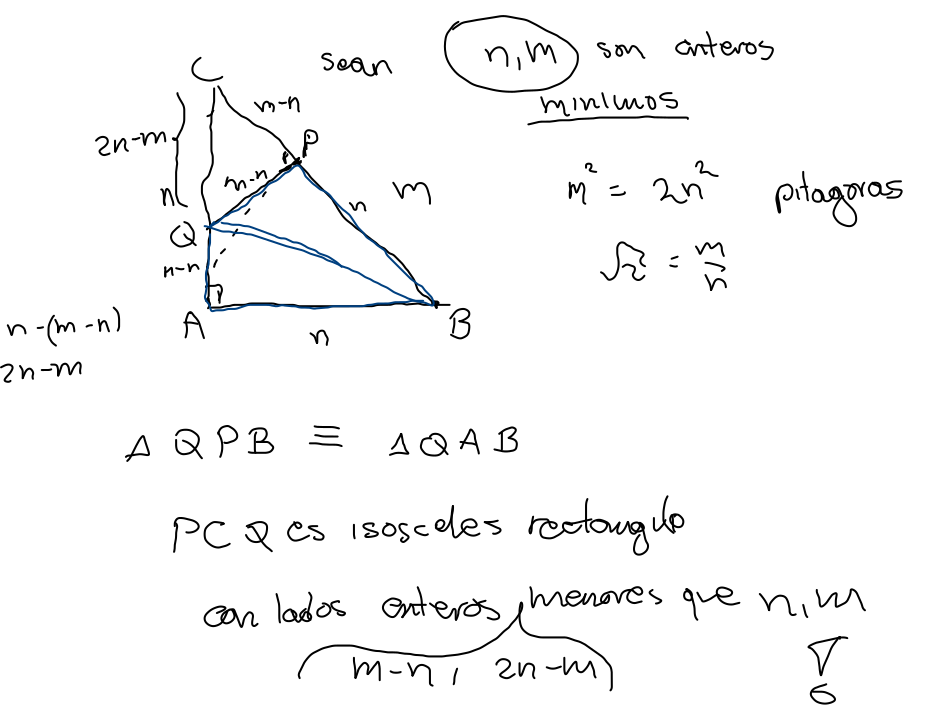 sean n,m son enteros
minimos
C
m-n
2n-m
P
n
m-n
m
n
Q
n-n
A
B
n
n-(m-n)
2n-m
m² = 2n² pitagoras
√2 = m/n
Δ QPB ≡ ΔQAB
PCQ es isosceles rectangulo
con lados enteros, menores que n,m
m-n, 2n-m